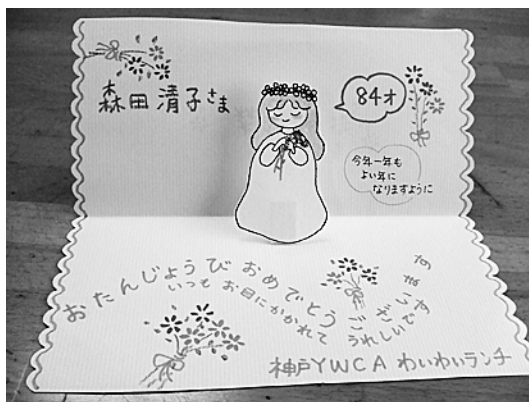 森田清子さま
84才
今年一年も
よい年に
なりますように
おたんじょうびおめでとうございます
いつもお目にかかれてうれしいです
神戸YWCA わいわいランチ